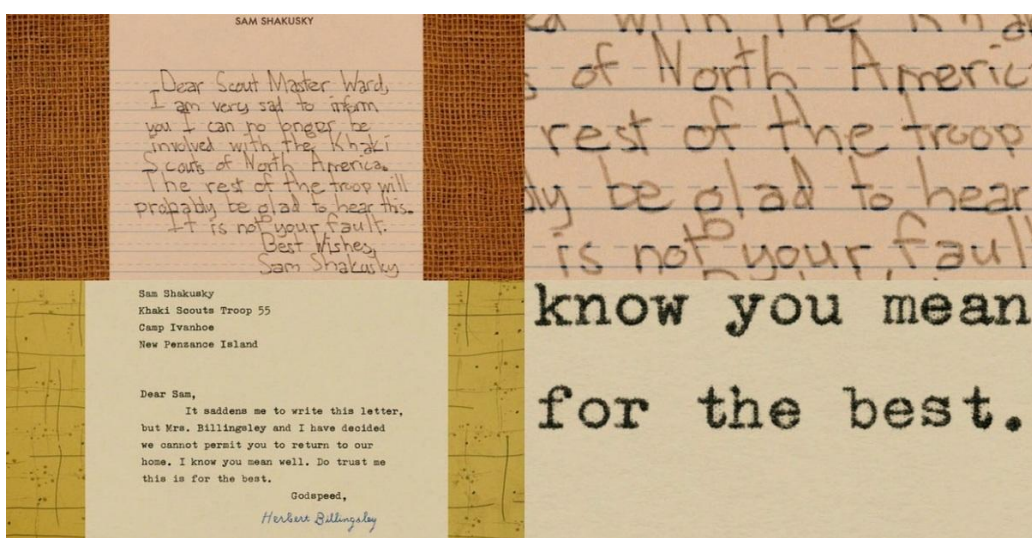 SAM SHAKUSKY
Dear Scout Master Ward,
I am very sad to inform
you I can no longer be
involved with the Khaki
Scouts of North America.
The rest of the troop will
probably be glad to hear this.
It is not your fault.
Best Wishes,
Sam Shakusky
ed with the Kha
s of North Americ
rest of the troop
ly be glad to hear
is not your faul
Sam Shakusky
Khaki Scouts Troop 55
Camp Ivanhoe
New Penzance Island
Dear Sam,
It saddens me to write this letter,
but Mrs. Billingsley and I have decided
we cannot permit you to return to our
home. I know you mean well. Do trust me
this is for the best.
Godspeed,
Herbert Billingsley
know you mean
for the best.